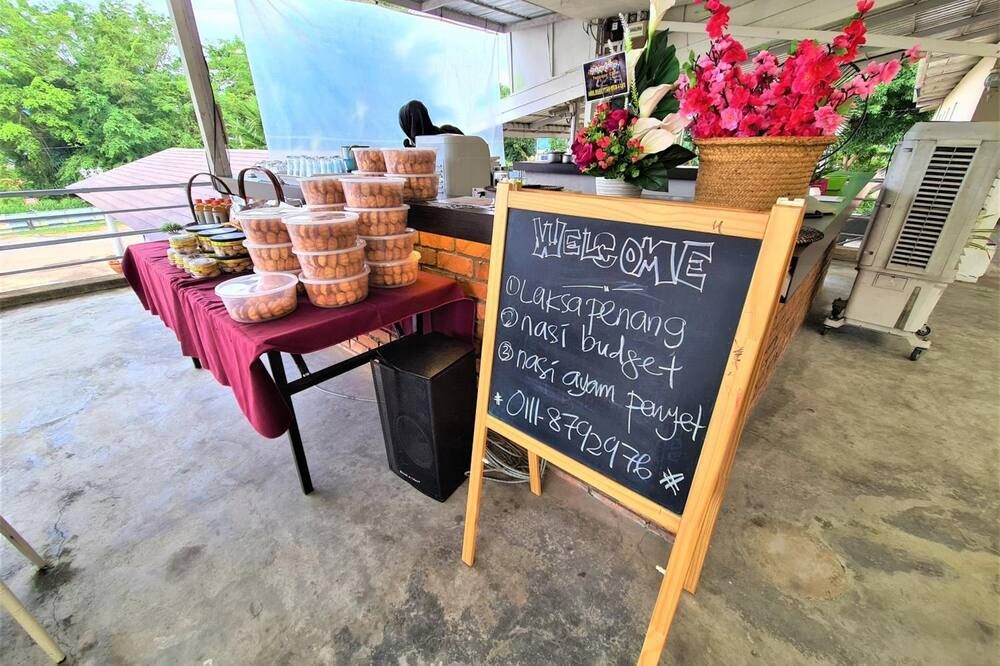 WELCOME
① Laksa penang
② nasi budget
③ nasi ayam penyet
# 0111-8792976 #